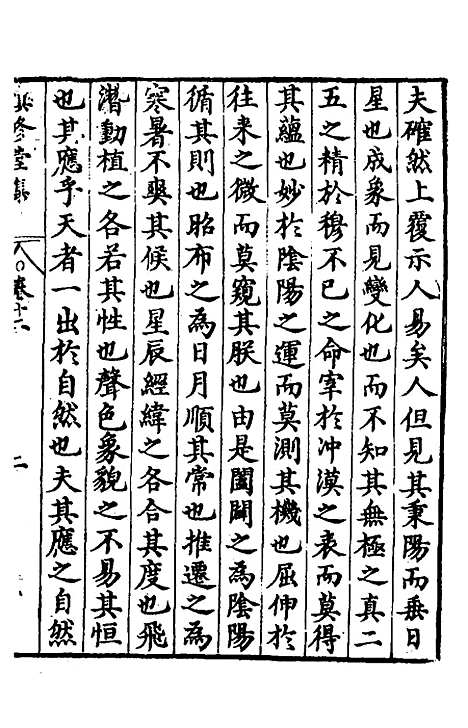 夫確然上覆示人易矣人但見其秉陽而垂日
星也成象而見變化也而不知其無極之真二
五之精於穆不已之命宰於沖漠之表而莫得
其蘊也妙於陰陽之運而莫測其機也屈伸於
往来之微而莫窺其朕也由是闔闢之為陰陽
循其則也昭布之為日月順其常也推遷之為
寒暑不爽其候也星辰經緯之各合其度也飛
潛動植之各若其性也聲色象貌之不易其恒
也其應乎天者一出於自然也夫其應之自然
堂集
卷十
二